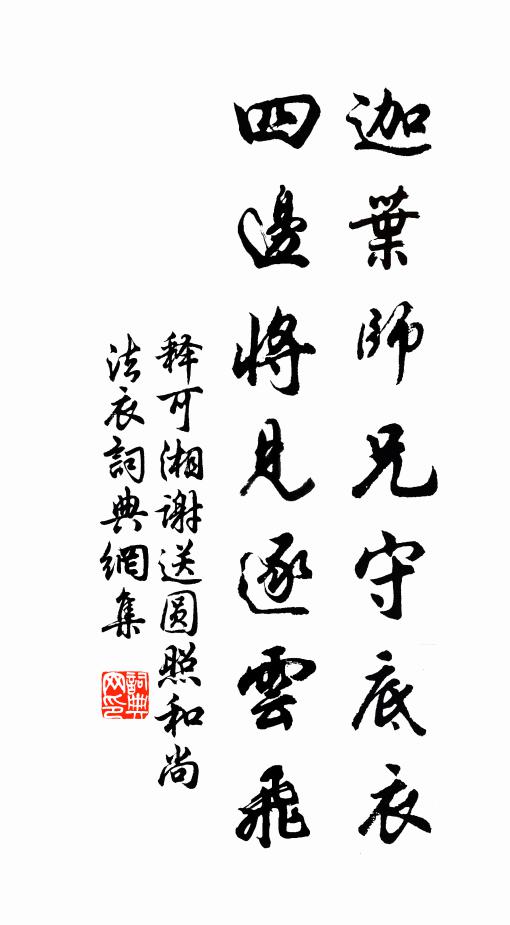 迦葉師兄守底衣
四邊將見逐雲飛
释可湘謝送圆照和尚
法衣詞典網集
詞典网印